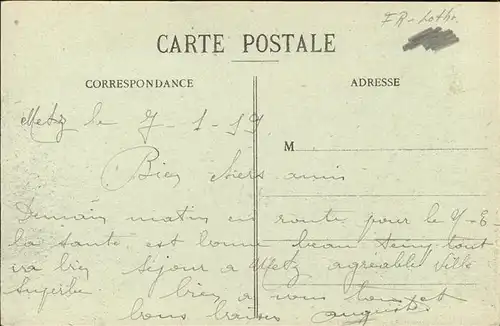 FR-Lothr.
CARTE POSTALE
CORRESPONDANCE
ADRESSE
Metz le 7-1-19
M
Bien chers amis
Demain matin en route pour le
la santé est bonne beau temps tout
va bien séjour a Metz agréable ville
superbe bien a vous tous et
bons baisers auguste